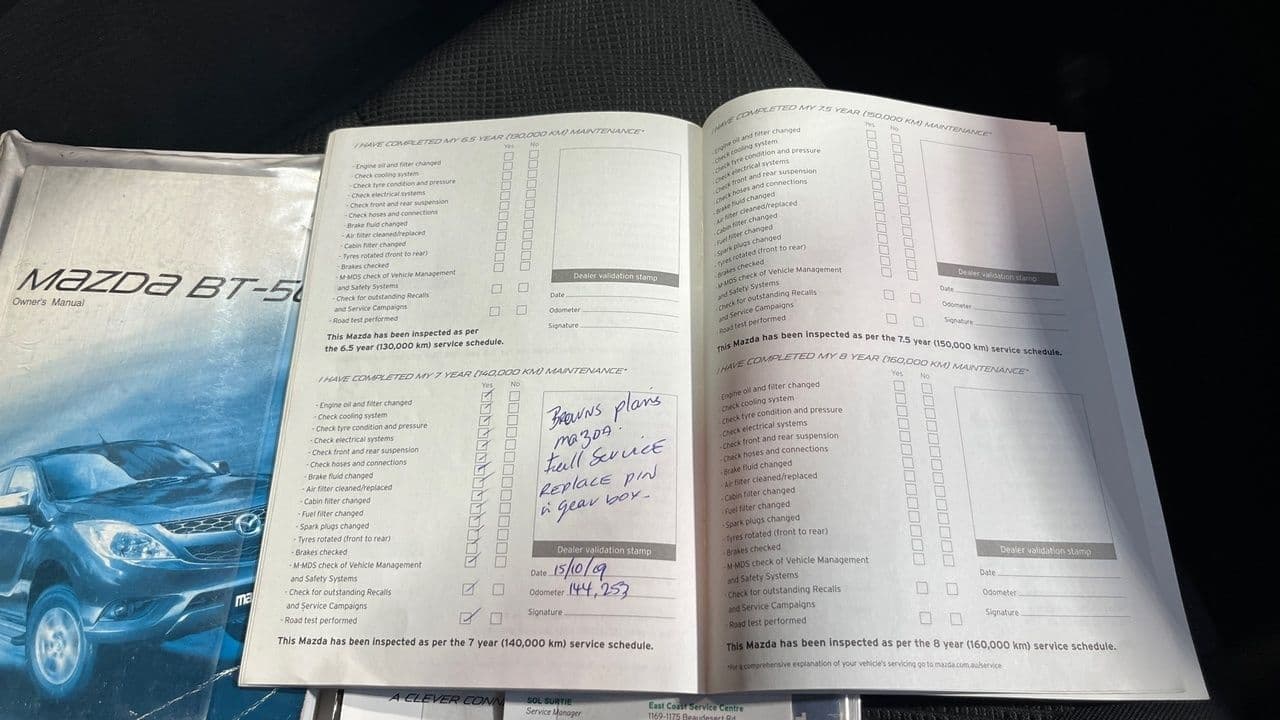 MAZDA BT-50
Owner's Manual
I HAVE COMPLETED MY 6.5 YEAR (130,000 KM) MAINTENANCE*
Yes No
- Engine oil and filter changed
- Check cooling system
- Check tyre condition and pressure
- Check electrical systems
- Check front and rear suspension
- Check hoses and connections
- Brake fluid changed
- Air filter cleaned/replaced
- Cabin filter changed
- Tyres rotated (front to rear)
- Brakes checked
- M-MDS check of Vehicle Management
and Safety Systems
- Check for outstanding Recalls
and Service Campaigns
- Road test performed
Dealer validation stamp
Date
Odometer
Signature
This Mazda has been inspected as per
the 6.5 year (130,000 km) service schedule.
I HAVE COMPLETED MY 7 YEAR (140,000 KM) MAINTENANCE*
Yes No
- Engine oil and filter changed
- Check cooling system
- Check tyre condition and pressure
- Check electrical systems
- Check front and rear suspension
- Check hoses and connections
- Brake fluid changed
- Air filter cleaned/replaced
- Cabin filter changed
- Fuel filter changed
- Spark plugs changed
- Tyres rotated (front to rear)
- Brakes checked
- M-MDS check of Vehicle Management
and Safety Systems
- Check for outstanding Recalls
and Service Campaigns
- Road test performed
BROWNS plains
mazda.
Full Service
REPLACE PIN
in gear box-
Dealer validation stamp
Date 15/10/19
Odometer 144,253
Signature
This Mazda has been inspected as per the 7 year (140,000 km) service schedule.
I HAVE COMPLETED MY 7.5 YEAR (150,000 KM) MAINTENANCE*
Yes No
- Engine oil and filter changed
- Check cooling system
- Check tyre condition and pressure
- Check electrical systems
- Check front and rear suspension
- Check hoses and connections
- Brake fluid changed
- Air filter cleaned/replaced
- Cabin filter changed
- Fuel filter changed
- Spark plugs changed
- Tyres rotated (front to rear)
- Brakes checked
- M-MDS check of Vehicle Management
and Safety Systems
- Check for outstanding Recalls
and Service Campaigns
- Road test performed
Dealer validation stamp
Date
Odometer
Signature
This Mazda has been inspected as per the 7.5 year (150,000 km) service schedule.
I HAVE COMPLETED MY 8 YEAR (160,000 KM) MAINTENANCE*
Yes No
- Engine oil and filter changed
- Check cooling system
- Check tyre condition and pressure
- Check electrical systems
- Check front and rear suspension
- Check hoses and connections
- Brake fluid changed
- Air filter cleaned/replaced
- Cabin filter changed
- Fuel filter changed
- Spark plugs changed
- Tyres rotated (front to rear)
- Brakes checked
- M-MDS check of Vehicle Management
and Safety Systems
- Check for outstanding Recalls
and Service Campaigns
- Road test performed
Dealer validation stamp
Date
Odometer
Signature
This Mazda has been inspected as per the 8 year (160,000 km) service schedule.
*For a comprehensive explanation of your vehicle's servicing go to mazda.com.au/service
A CLEVER CONN
SOL SURTIE
Service Manager
East Coast Service Centre
1169-1175 Beaudesert Rd